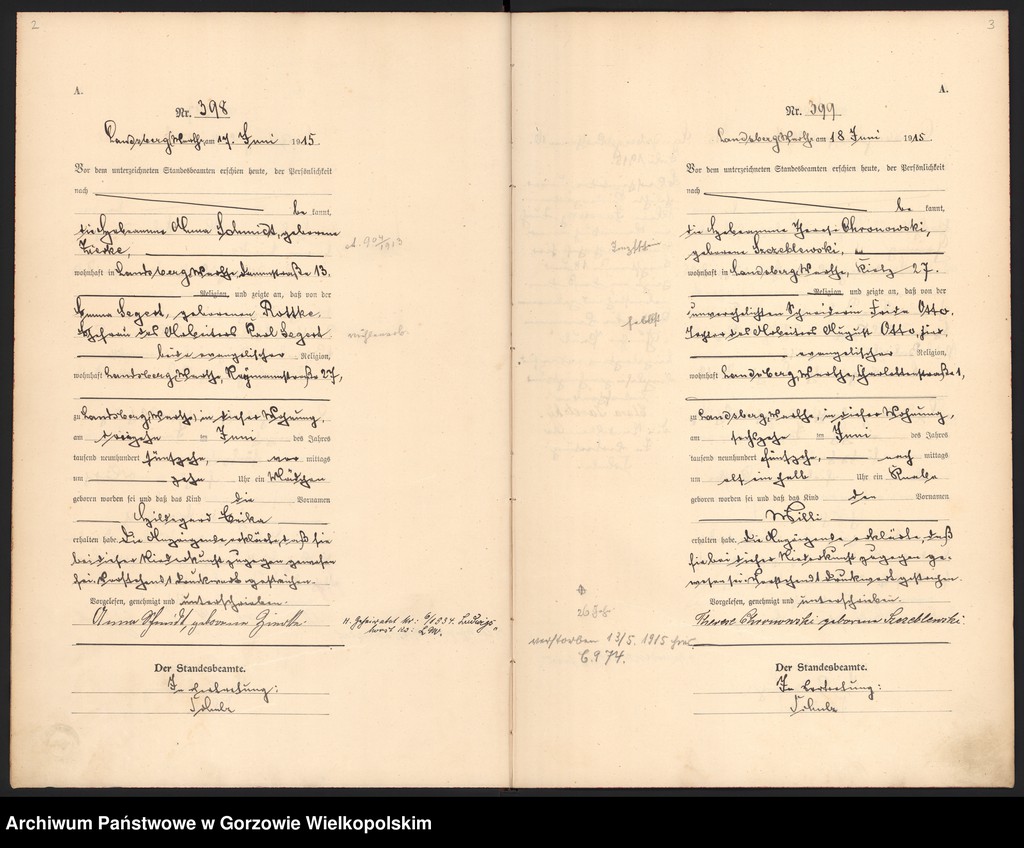 2
A.
Nr. 398
Landsberg, Warthe, am 17. Juni 1915.
Vor dem unterzeichneten Standesbeamten erschien heute, der Persönlichkeit
nach
be kannt,
die Hebamme Anna Schmidt, geborene
Zierke,
wohnhaft in Landsberg, Warthe, Dammstraße 13,
Religion, und zeigte an, daß von der
Emma Segert, geborenen Rottke,
Ehefrau des Arbeiters Karl Segert
beide evangelischer Religion,
wohnhaft Landsberg, Warthe, Reymannstraße 27,
zu Landsberg, Warthe, in dieser Wohnung,
am Juni des Jahres
tausend neunhundert fünfzehn, vor mittags
um zehn Uhr ein Mädchen
geboren worden sei und daß das Kind die Vornamen
Hildegard Erika
erhalten habe. Die Anzeigende erklärte, daß sie
bei dieser Niederkunft zugegen gewesen
sei. Vorstehend 1 Druckwort gestrichen.
Vorgelesen, genehmigt und unterschrieben.
Anna Schmidt, geborene Zierke.
Der Standesbeamte.
In Vertretung:
H. Geheiratet Nr: 6/1934. Ludwigs-
horst Krs: L.W.
3
A.
Nr. 399
Landsberg, Warthe, am 18 Juni 1915.
Vor dem unterzeichneten Standesbeamten erschien heute, der Persönlichkeit
nach
be kannt,
die Hebamme Therese Chronowski,
geborene Szczeblewski,
wohnhaft in Landsberg, Warthe, Kietz 27.
Religion, und zeigte an, daß von der
unverehelichten Schneiderin Frida Otto,
Tochter des Arbeiters August Otto, hier,
evangelischer Religion,
wohnhaft Landsberg, Warthe, Charlottenstraße 1,
zu Landsberg, Warthe, in dieser Wohnung,
am sechszehn ten Juni des Jahres
tausend neunhundert fünfzehn, nach mittags
um elf ein halb Uhr ein Knabe
geboren worden sei und daß das Kind den Vornamen
Willi
erhalten habe. Die Anzeigende erklärte, daß
sie bei dieser Niederkunft zugegen ge-
wesen sei. Vorstehend 1 Druckwort gestrichen.
Vorgelesen, genehmigt und unterschrieben.
Therese Chronowski geborene Szczeblewski.
verstorben 13/5. 1915 hier
C. 974.
Der Standesbeamte.
In Vertretung:
Archiwum Państwowe w Gorzowie Wielkopolskim